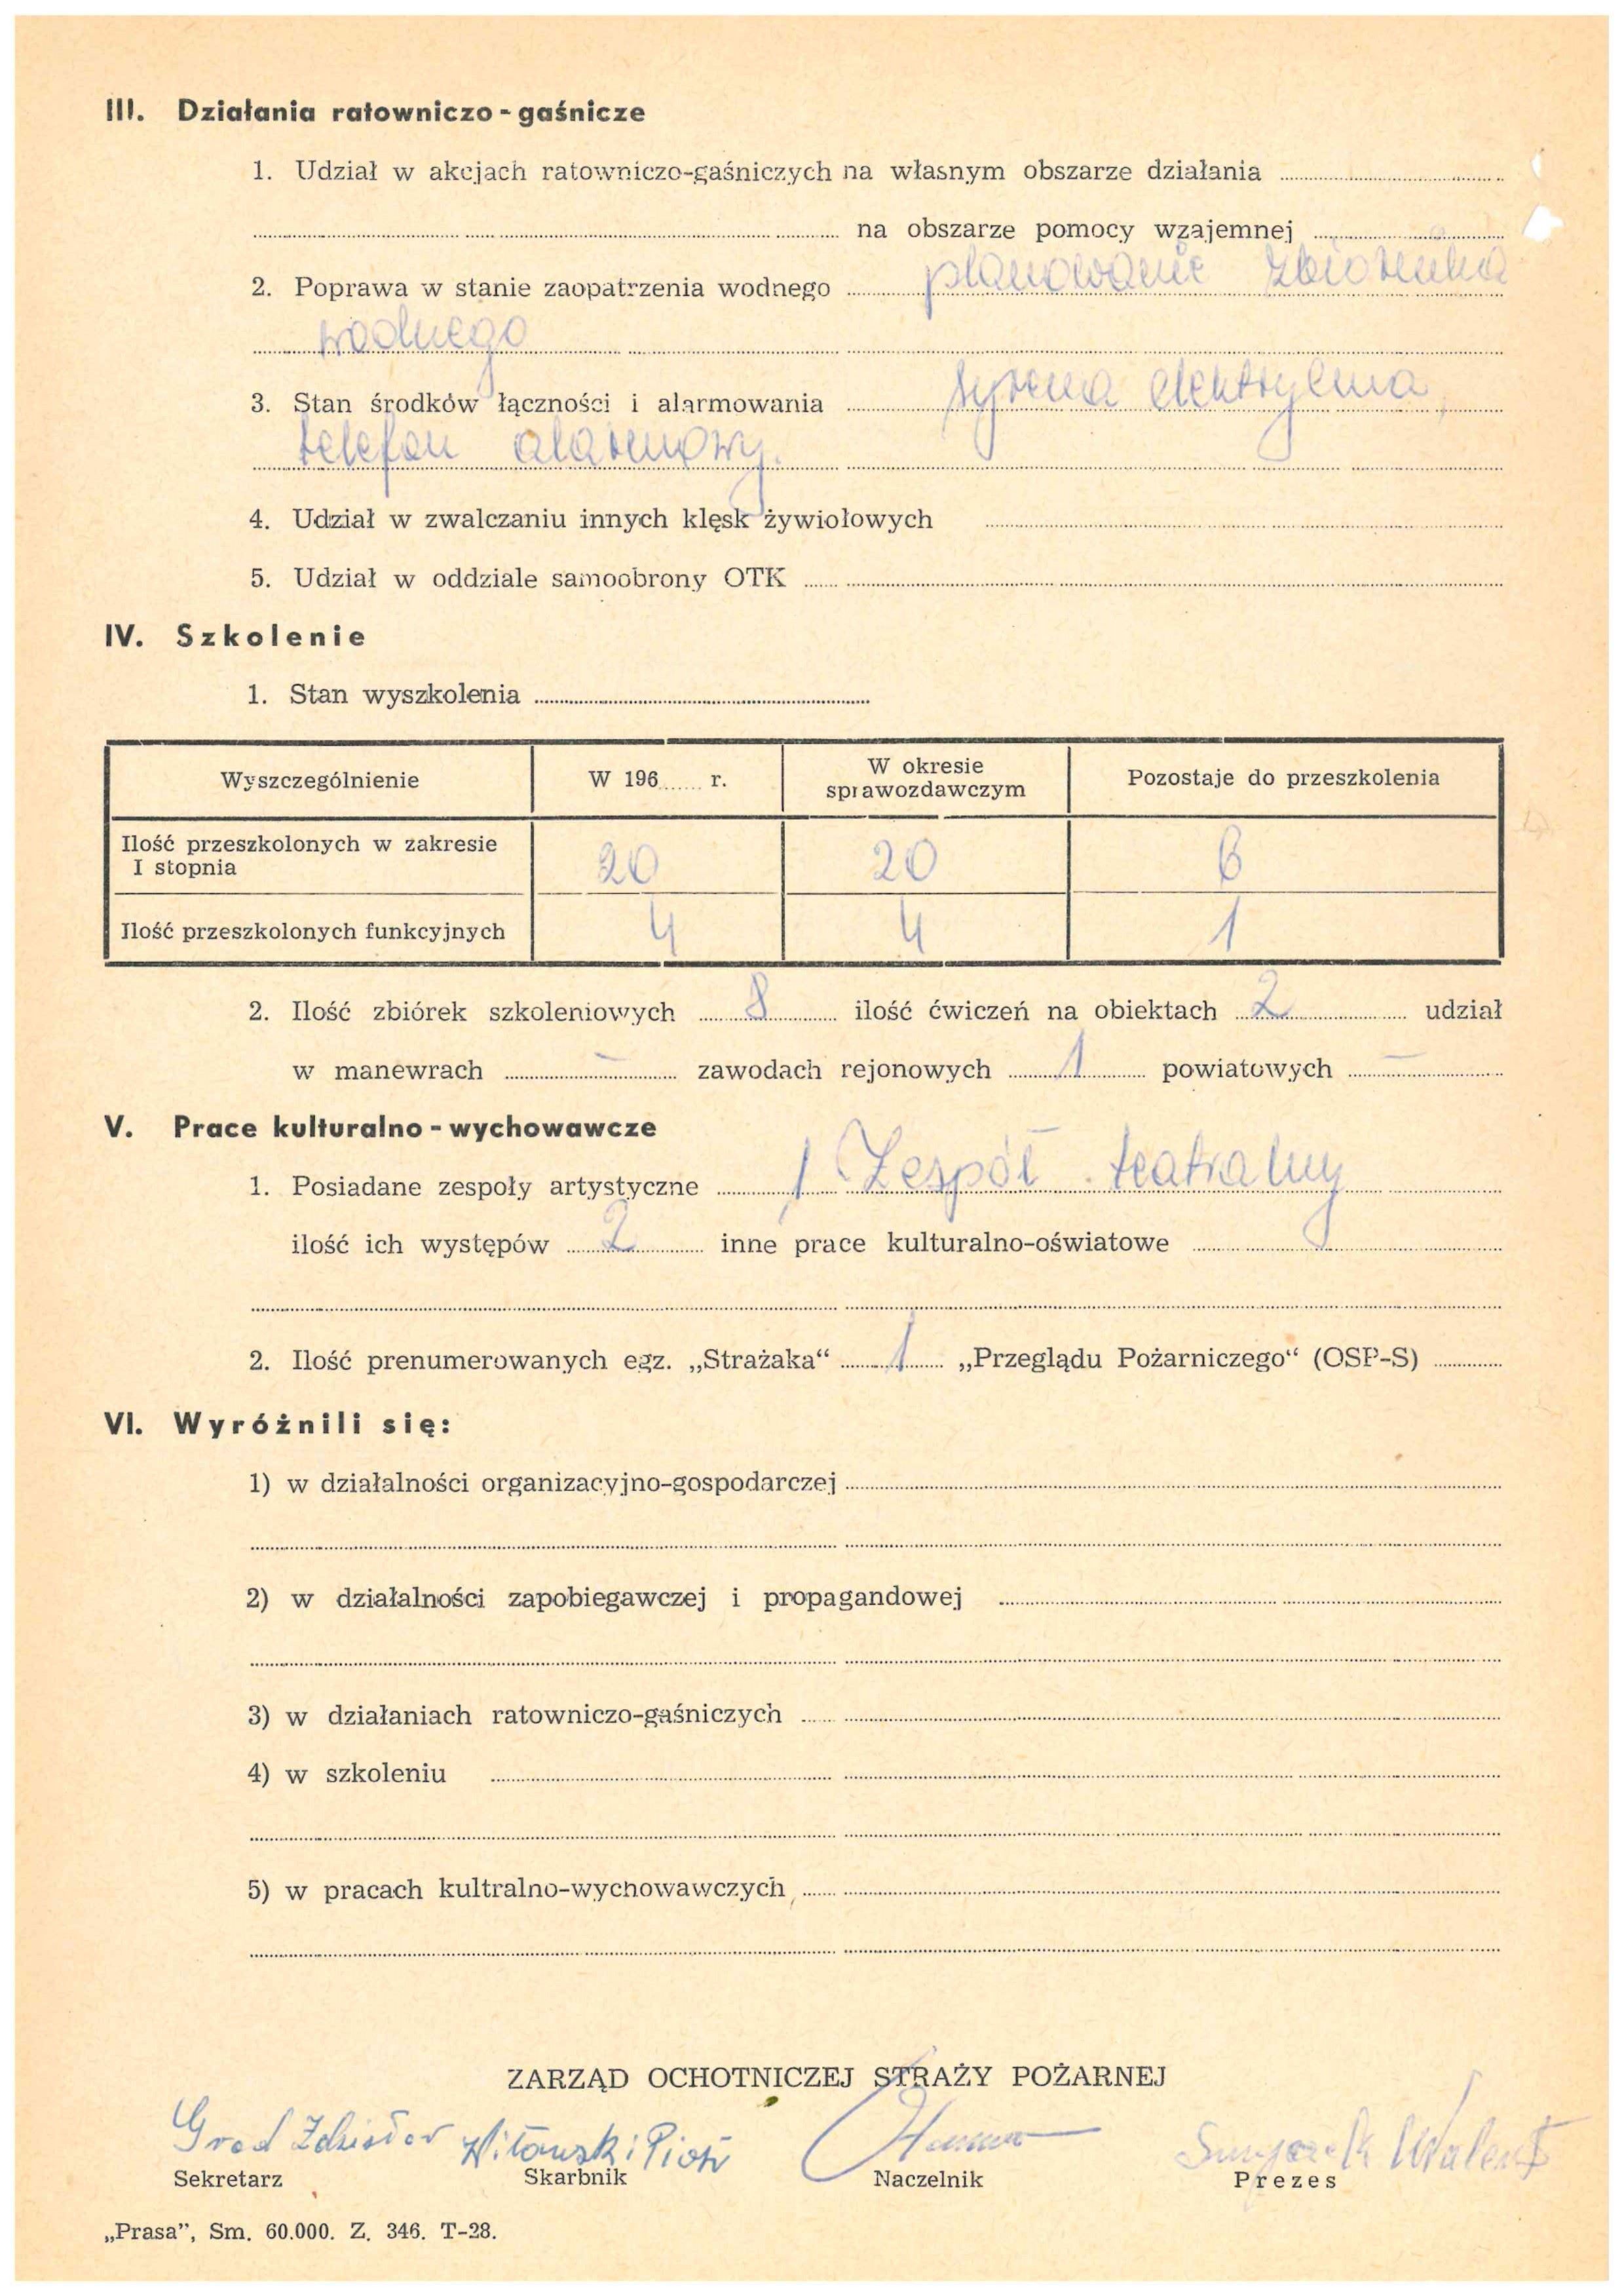 III. Działania ratowniczo-gaśnicze
1. Udział w akcjach ratowniczo-gaśniczych na własnym obszarze działania
na obszarze pomocy wzajemnej
2. Poprawa w stanie zaopatrzenia wodnego planowanie zbiornika
wodnego
3. Stan środków łączności i alarmowania syrena elektryczna,
telefon alarmowy.
4. Udział w zwalczaniu innych klęsk żywiołowych
5. Udział w oddziale samoobrony OTK
IV. Szkolenie
1. Stan wyszkolenia
Wyszczególnienie W 196...... r. W okresie sprawozdawczym Pozostaje do przeszkolenia
Ilość przeszkolonych w zakresie I stopnia 20 20 6
Ilość przeszkolonych funkcyjnych 4 4 1
2. Ilość zbiórek szkoleniowych 8 ilość ćwiczeń na obiektach 2 udział
w manewrach – zawodach rejonowych 1 powiatowych –
V. Prace kulturalno-wychowawcze
1. Posiadane zespoły artystyczne 1 Zespół teatralny
ilość ich występów 2 inne prace kulturalno-oświatowe
2. Ilość prenumerowanych egz. „Strażaka“ 1 „Przeglądu Pożarniczego“ (OSP-S)
VI. Wyróżnili się:
1) w działalności organizacyjno-gospodarczej
2) w działalności zapobiegawczej i propagandowej
3) w działaniach ratowniczo-gaśniczych
4) w szkoleniu
5) w pracach kultralno-wychowawczych
ZARZĄD OCHOTNICZEJ STRAŻY POŻARNEJ
Grad Zdzisław Witowski Piotr
Sekretarz Skarbnik Naczelnik Prezes
„Prasa”, Sm. 60.000. Z. 346. T-28.